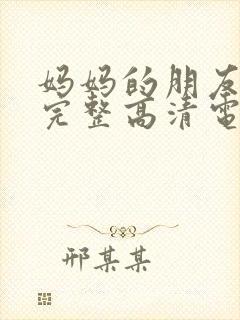 妈妈的朋友
完整高清电
邢某某